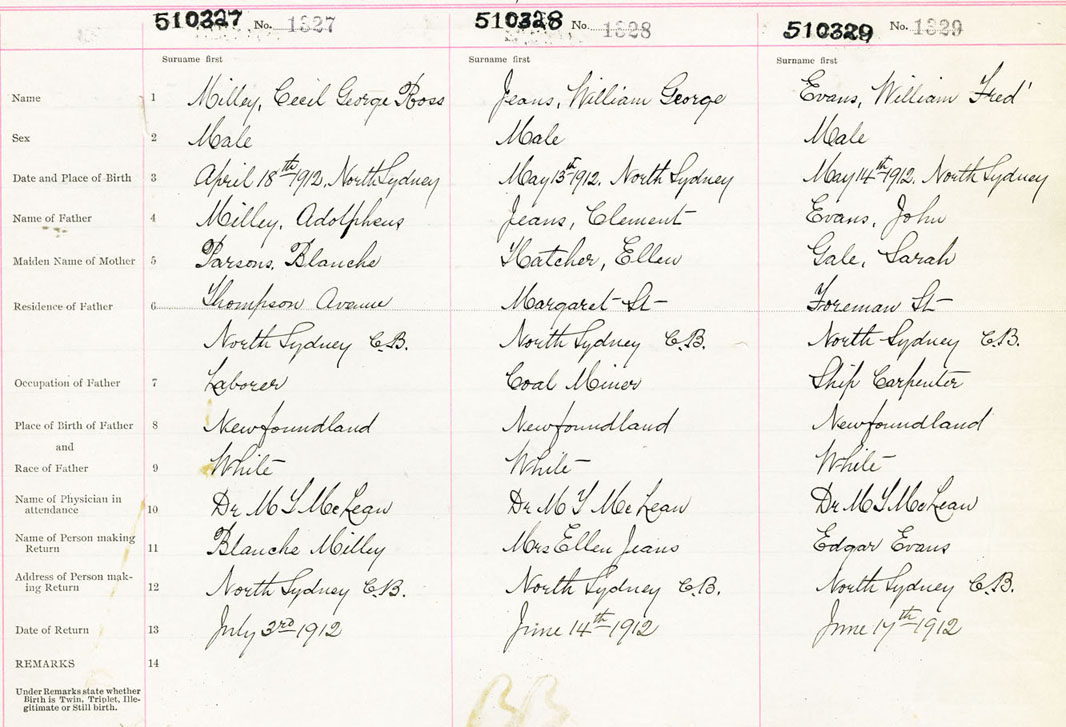 510327 No. 1327 510328 No. 1328 510329 No. 1329
Surname first Surname first Surname first
Name 1 Milley, Cecil George Ross Jeans, William George Evans, William Fred'
Sex 2 Male Male Male
Date and Place of Birth 3 April 18th 1912, North Sydney May 13th 1912. North Sydney May 14th 1912. North Sydney
Name of Father 4 Milley, Adolpheus Jeans, Clement Evans, John
Maiden Name of Mother 5 Parsons, Blanche Hatcher, Ellen Gale, Sarah
Residence of Father 6 Thompson Avenue Margaret St Foreman St
North Sydney C.B. North Sydney C.B. North Sydney C.B.
Occupation of Father 7 Laborer Coal Miner Ship Carpenter
Place of Birth of Father 8 Newfoundland Newfoundland Newfoundland
and
Race of Father 9 White White White
Name of Physician in
attendance 10 Dr M McLean Dr M McLean Dr M McLean
Name of Person making
Return 11 Blanche Milley Mrs Ellen Jeans Edgar Evans
Address of Person mak-
ing Return 12 North Sydney C.B. North Sydney C.B. North Sydney C.B.
Date of Return 13 July 3rd 1912 June 14th 1912 June 17th 1912
REMARKS 14
Under Remarks state whether
Birth is Twin, Triplet, Ille-
gitimate or Still birth.
BB